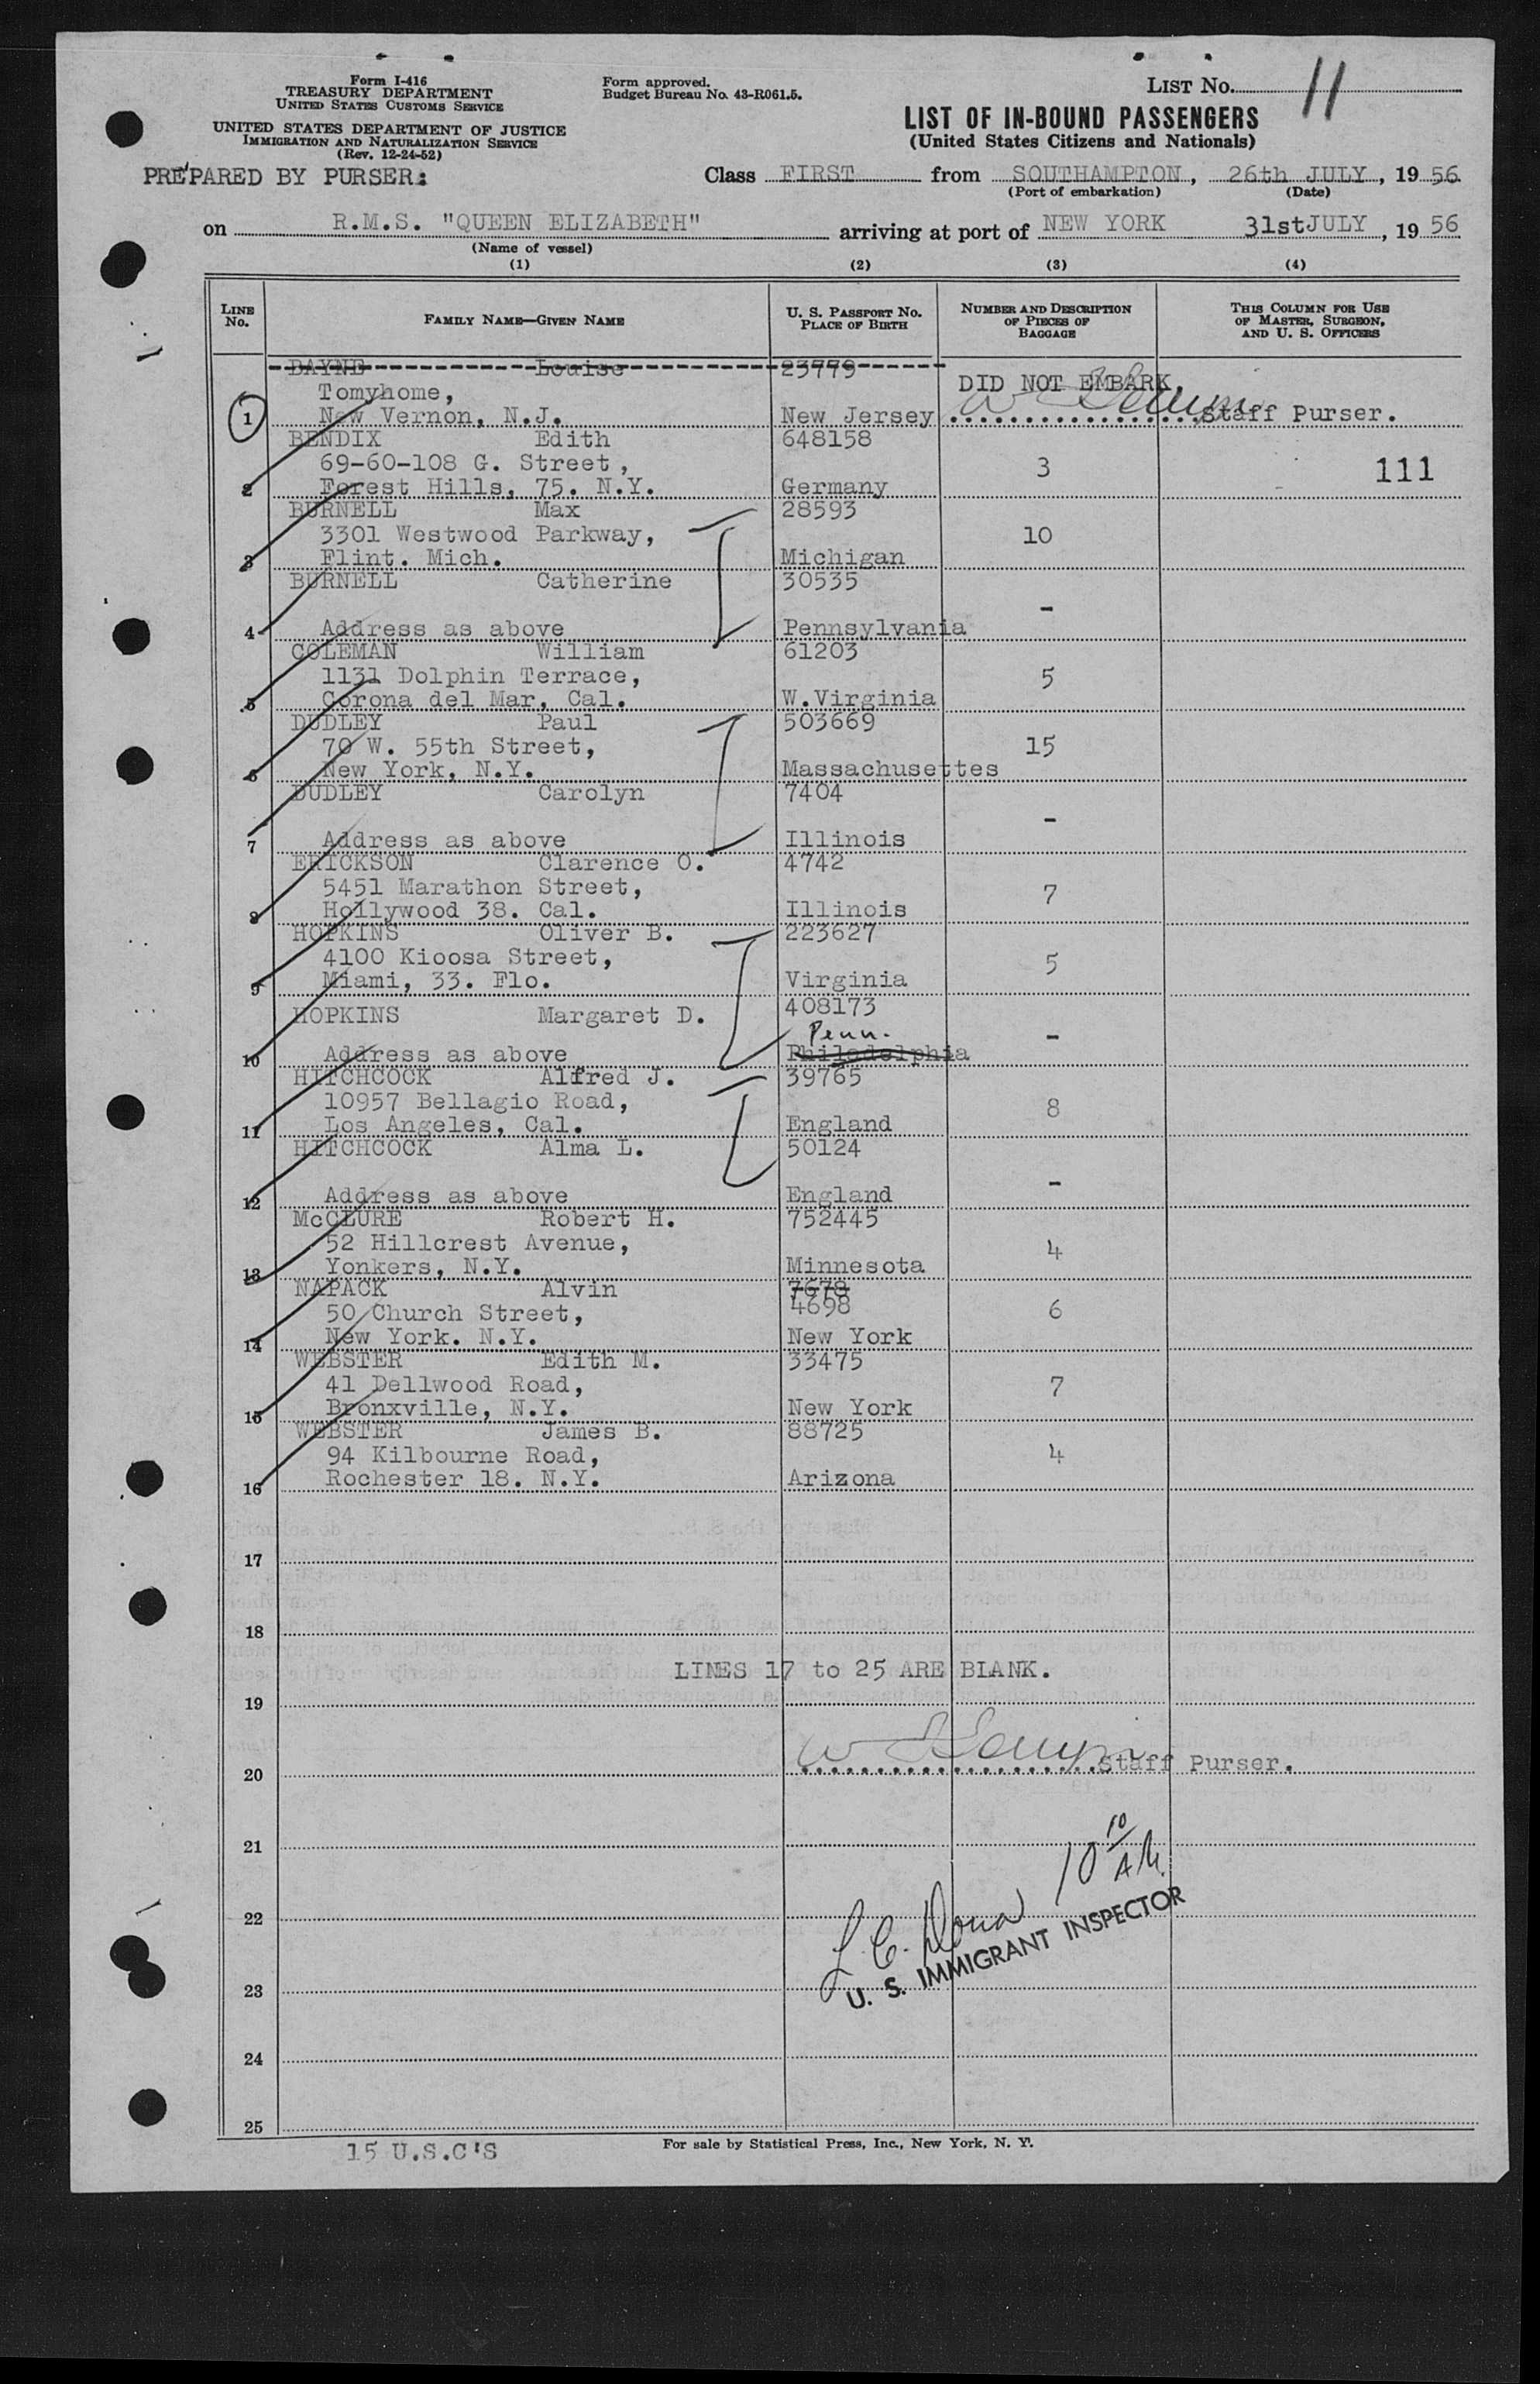 Form I-416
TREASURY DEPARTMENT
UNITED STATES CUSTOMS SERVICE
UNITED STATES DEPARTMENT OF JUSTICE
IMMIGRATION AND NATURALIZATION SERVICE
(Rev. 12-24-52)
Form approved.
Budget Bureau No. 43-R061.5.
LIST No. 11
LIST OF IN-BOUND PASSENGERS
(United States Citizens and Nationals)
PREPARED BY PURSER:
Class FIRST from SOUTHAMPTON, 26th JULY, 1956
(Port of embarkation) (Date)
on R.M.S. "QUEEN ELIZABETH" arriving at port of NEW YORK 31st JULY, 1956
(Name of vessel)
(1) (2) (3) (4)
LINE No. FAMILY NAME—GIVEN NAME U. S. PASSPORT NO. PLACE OF BIRTH NUMBER AND DESCRIPTION OF PIECES OF BAGGAGE THIS COLUMN FOR USE OF MASTER, SURGEON, AND U. S. OFFICERS
DAYNE Louise 23779
Tomyhome, DID NOT EMBARK.
1 New Vernon, N.J. New Jersey Staff Purser.
BENDIX Edith 648158
69-60-108 G. Street, 3 111
2 Forest Hills, 75. N.Y. Germany
BURNELL Max 28593
3301 Westwood Parkway, 10
3 Flint. Mich. Michigan
BURNELL Catherine 30535
-
4 Address as above Pennsylvania
COLEMAN William 61203
1131 Dolphin Terrace, 5
5 Corona del Mar, Cal. W.Virginia
DUDLEY Paul 503669
70 W. 55th Street, 15
6 New York, N.Y. Massachusettes
DUDLEY Carolyn 7404
-
7 Address as above Illinois
ERICKSON Clarence O. 4742
5451 Marathon Street, 7
8 Hollywood 38. Cal. Illinois
HOPKINS Oliver B. 223627
4100 Kioosa Street, 5
9 Miami, 33. Flo. Virginia
408173
HOPKINS Margaret D. Penn. -
10 Address as above Philadelphia
HITCHCOCK Alfred J. 39765
10957 Bellagio Road, 8
11 Los Angeles, Cal. England
HITCHCOCK Alma L. 50124
-
12 Address as above England
McCLURE Robert H. 752445
52 Hillcrest Avenue, 4
13 Yonkers, N.Y. Minnesota
NAPACK Alvin 7678
50 Church Street, 4698 6
14 New York. N.Y. New York
WEBSTER Edith M. 33475
41 Dellwood Road, 7
15 Bronxville, N.Y. New York
WEBSTER James B. 88725
94 Kilbourne Road, 4
16 Rochester 18. N.Y. Arizona
17
18
LINES 17 to 25 ARE BLANK.
19
20 Staff Purser.
21
10 10/AM.
22
U. S. IMMIGRANT INSPECTOR
23
24
25
15 U.S.C'S
For sale by Statistical Press, Inc., New York, N. Y.